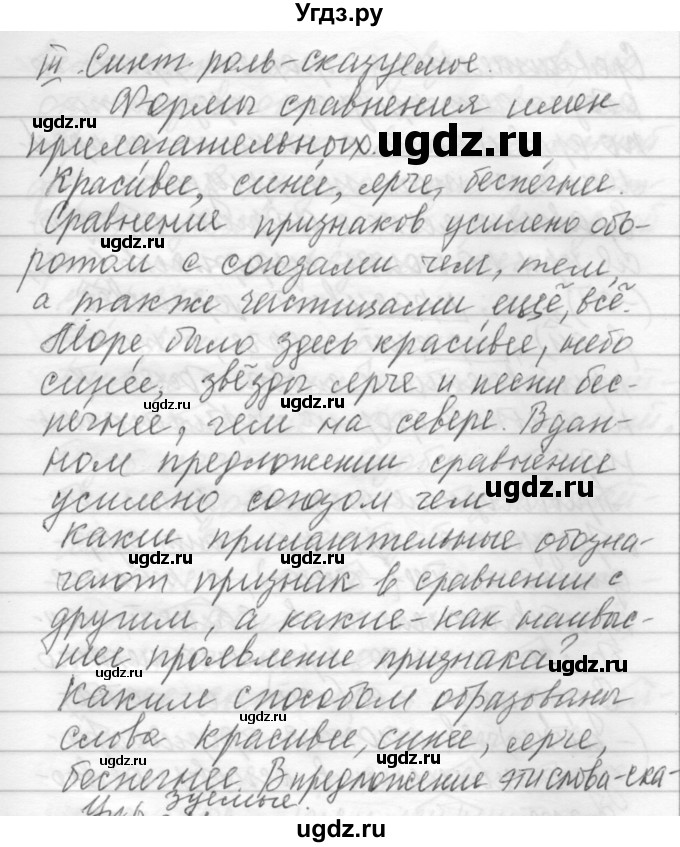 Угдз.ру
III. Синт роль-сказуемое.
Формы сравнения имен
прилагательных. ugdz.ru
Краси́вее, сине́е, ярче, беспечнее.
Сравнение признаков усилено обо-
ugdz.ru
ротом с союзами чем, тем,
а также частицами ещё, всё.
ugdz.ru ugdz.ru
Море, было здесь краси́вее, небо
сине́е, звёзды ярче и песни бес-
ugdz.ru ugdz.ru
печнее, чем на севере. В дан-
ном предложении сравнение
усилено союзом чем ugdz.ru
Какие прилагательные обозна-
ugdz.ru ugdz.ru
чают признак в сравнении с
другим, а какие-как наивыс-
шее проявление признака?
ugdz.ru
Каким способом образованы
ugdz.ru
слова красивее, синее, ярче,
беспечнее. В предложение эти слова-ска-
зуемые.
ugdz.ru
ugdz.ru